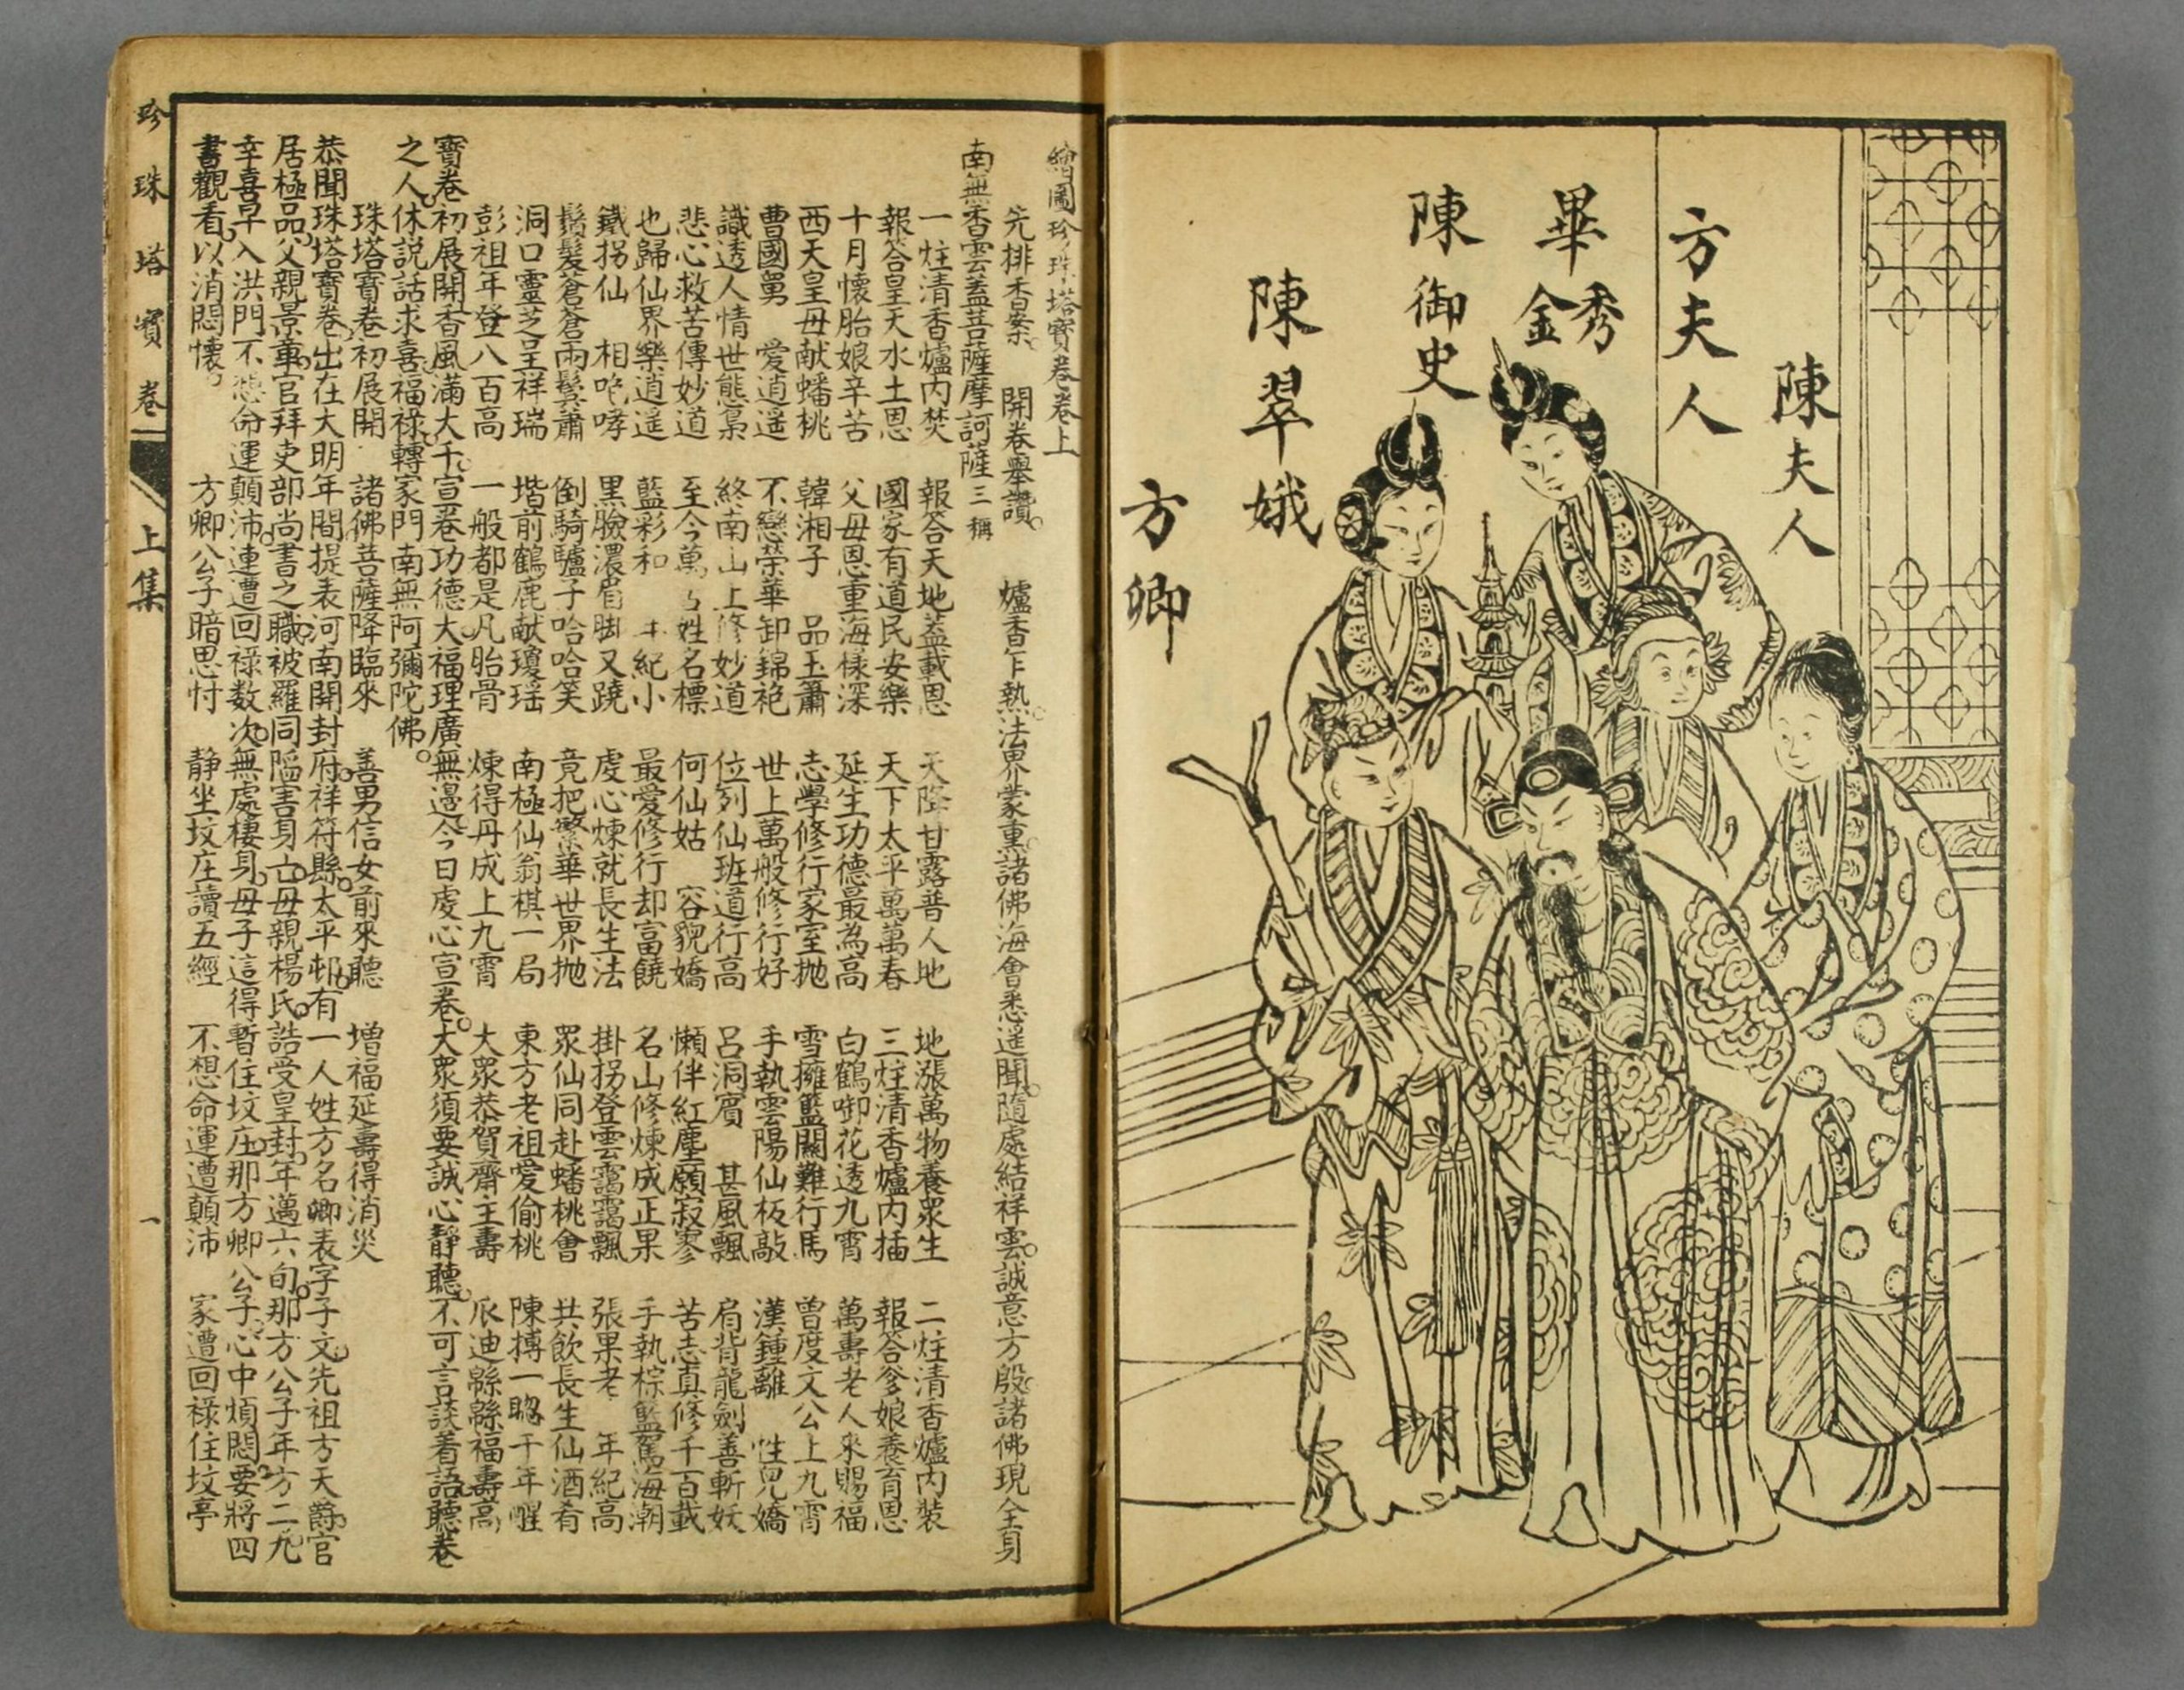 陳夫人
方夫人
畢秀金
陳御史
陳翠娥
方卿
繪圖珍珠塔寶卷卷上
先排香案。 開卷舉讚。 爐香乍熱。法界蒙熏。諸佛海會悉遥聞。隨處結祥雲。誠意方殷。諸佛現全身
南無香雲蓋菩薩摩訶薩三稱
一炷清香爐内焚 報答天地蓋載恩 天降甘露普人地 地漲萬物養眾生 二炷清香爐内裝
報答皇天水土恩 國家有道民安樂 天下太平萬萬春 三炷清香爐内插 報答爹娘養育恩
十月懷胎娘辛苦 父母恩重海樣深 延生功德最為高 白鶴啣花透九霄 萬壽老人來賜福
西天皇母献蟠桃 韓湘子 品玉簫 志學修行家室抛 雪擁籃關難行馬 曾度文公上九霄
曹國舅 愛逍遥 不戀荣華卸錦袍 世上萬般修行好 手執雲陽仙板敲 漢鍾離 性皃嬌
識透人情世態梟 終南山上修妙道 位列仙班道行高 呂洞賓 甚風飄 肩背龍劍善斬妖
悲心救苦傳妙道 至今萬 姓名標 何仙姑 容貌嬌 懶伴紅塵願寂寥 苦志真修千百載
也歸仙界樂逍遥 藍彩和 紀小 最愛修行却富饒 名山修煉成正果 手執棕籃駕海潮
鐵拐仙 相咆哮 黑臉濃眉脚又蹺 虔心煉就長生法 掛拐登雲靄靄飄 張果老 年紀高
鬍髮蒼蒼兩鬢蕭 倒騎驢子哈哈笑 竟把繁華世界抛 眾仙同赴蟠桃會 共飲長生仙酒肴
洞口靈芝呈祥瑞 堦前鶴鹿献瓊瑶 南極仙翁棋一局 東方老祖愛偷桃 陳摶一𥇦千年醒
彭祖年登八百高 一般都是凡胎骨 煉得丹成上九霄 大眾恭賀齋主壽 瓜迪緜緜福壽高
寶卷初展開。香風滿大千。宣卷功德大。福理廣無邊。今日虔心宣卷。大眾須要誠心靜聽。不可言談着語。聽卷
之人。休説話。求喜福禄轉家門 南無阿彌陀佛。
珠塔寶卷初展開 諸佛菩薩降臨來 善男信女前來聽 增福延壽得消災
恭聞珠塔寶卷。出在大明年間。提表河南開封府。祥符縣。太平邨。有一人姓方名卿。表字子文。先祖方天爵。官
居極品。父親景章。官拜吏部尚書之職。被羅同陥害身亡。母親楊氏。誥受皇封。年邁六旬。那方公子年方二九。
幸喜早入洪門。不想命運顛沛。連遭回禄数次。無處棲身。母子這得暫住坟庄。那方卿公子。心中煩悶。要將四
書觀看。以消悶懷。
方卿公子暗思忖 静坐坟庄讀五經 不想命運遭顛沛 家遭回禄住坟亭
珍珠塔寶卷 上集 一